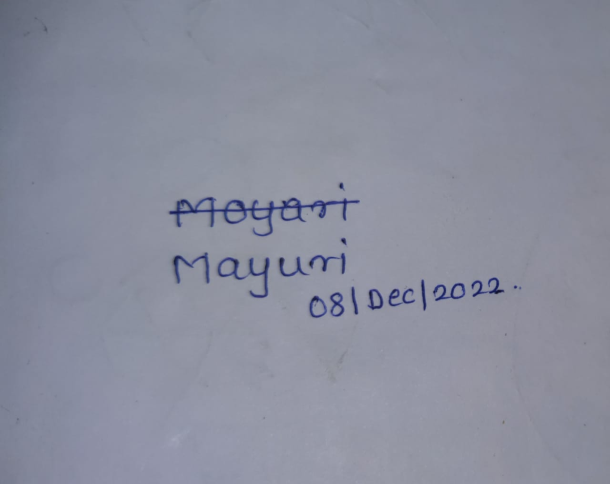 Moyari
Mayuri
08/Dec/2022.